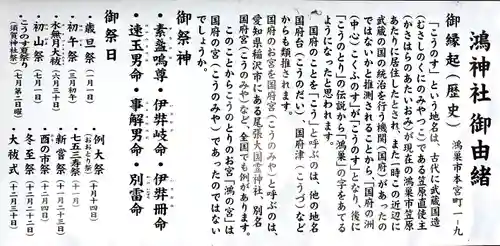 鴻神社 御由緒
鴻巣市本宮町一-九
御縁起(歴史)
「こうのす」という地名は、古代に武蔵国造
(むさしのくにのみやつこ)である笠原直使主
(かさはらのあたいおみ)が現在の鴻巣市笠原
あたりに居住したとされ、また一時この近辺に
武蔵国の国の統治を行う機関(国府)があったの
ではないかと推測されることから、「国府の洲
(中心)こくふのす」が「こうのす」となり、後に
「こうのとり」の伝説から「鴻巣」の字をあてる
ようになったと思われます。
国府のことを「こう」と呼ぶのは、他の地名
国府台(こうのだい)、国府津(こうづ)など
からも類推されます。
国府のお宮を国府宮(こうのみや)と呼ぶのは、
愛知県稲沢市にある尾張大国霊神社、別名
国府宮(こうのみや)など、全国でも例があります。
このことからこうのとりのお宮「鴻の宮」は
国府の宮(こうのみや)であったのではない
でしょうか。
御祭神
・素盞嗚尊・伊弉岐命・伊弉冊命
・速玉男命・事解男命・別雷命
御祭日
・歳旦祭(一月一日)
・初午祭(三月初午)
・水無月大祓(六月三十日)
・初山祭(七月一日)
・こうのす夏祭り(七月第二日曜)
(須賀神社祭)
例大祭(十月十四日)
(おおとり祭)
・七五三寿祭(十一月)
・新嘗祭(十一月二十三日)
・酉の市祭(十二月四日)
・冬至祭(十二月)
・大祓式(十二月三十日)